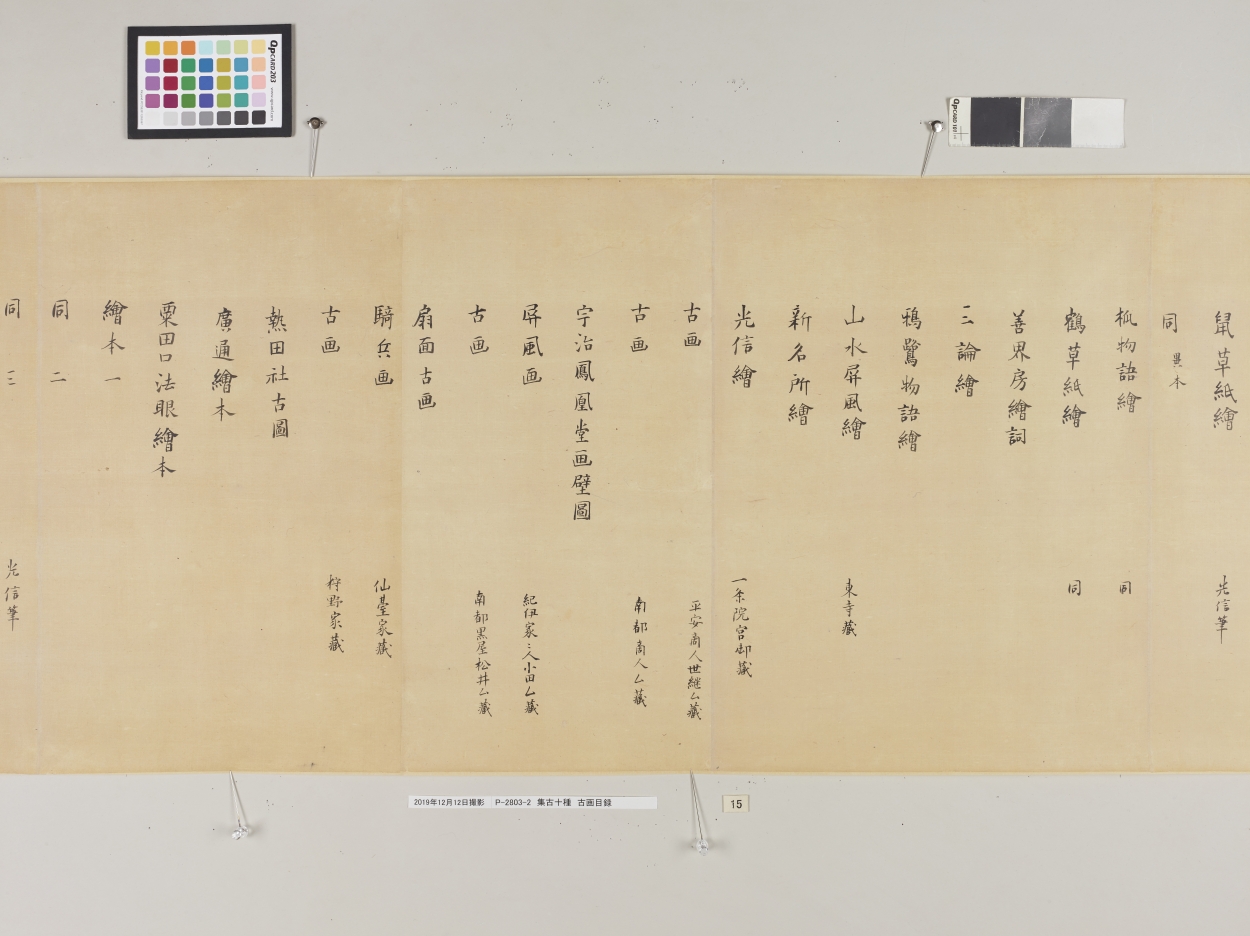 鼠草紙繪　光信筆
同　異本
狐物語繪　同
鶴草紙繪　同
善界房繪詞
三論繪
鴉鷺物語繪
山水屏風繪　東寺藏
新名所繪
光信繪　一条院宮御藏
古画　平安商人世継ム藏
古画　南都商人ム藏
宇治鳳凰堂画壁圖
屏風画　紀伊家ミ人小田ム藏
古画　南都黒屋松井ム藏
扇面古画
騎兵画　仙臺家藏
古画　狩野家藏
熱田社古圖
廣通繪本
粟田口法眼繪本
繪本一
同　二
同　三　光信筆
2019年12月12日撮影　P-2803-2　集古十種　古画目録
15
QPCARD 203
QPCARD 101